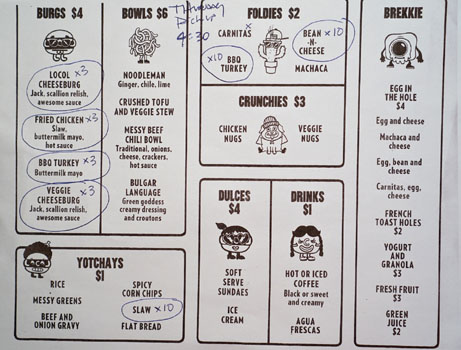 BURGS $4
LOCOL x3
CHEESEBURG
Jack, scallion relish,
awesome sauce
FRIED CHICKEN x3
Slaw,
buttermilk mayo,
hot sauce
BBQ TURKEY x3
Buttermilk mayo
VEGGIE x3
CHEESEBURG
Jack, scallion relish,
awesome sauce
BOWLS $6
NOODLEMAN
Ginger, chile, lime
CRUSHED TOFU
AND VEGGIE STEW
MESSY BEEF
CHILI BOWL
Traditional, onions,
cheese, crackers,
hot sauce
BULGAR
LANGUAGE
Green goddess
creamy dressing
and croutons
Thursday
Pickup
4:30
FOLDIES $2
CARNITAS x
x10 BBQ
TURKEY
BEAN x10
-N-
CHEESE
MACHACA
CRUNCHIES $3
CHICKEN
NUGS
VEGGIE
NUGS
BREKKIE
EGG IN
THE HOLE
$4
Egg and cheese
Machaca and
cheese
Egg, bean and
cheese
Carnitas, egg,
cheese
FRENCH
TOAST HOLES
$2
YOGURT
AND
GRANOLA
$3
FRESH FRUIT
$3
GREEN
JUICE
$2
YOTCHAYS
$1
RICE
MESSY GREENS
BEEF AND
ONION GRAVY
SPICY
CORN CHIPS
SLAW x10
FLAT BREAD
DULCES
$4
SOFT
SERVE
SUNDAES
ICE
CREAM
DRINKS
$1
HOT OR ICED
COFFEE
Black or sweet
and creamy
AGUA
FRESCAS